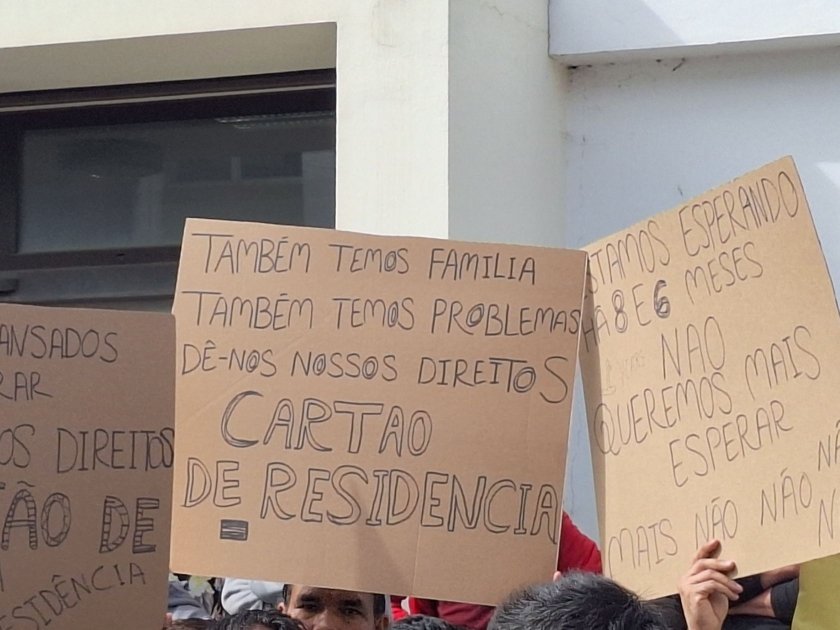 ANSADOS
RAR
OS DIREITOS
ÃO DE
ESIDÊNCIA
TAMBÉM TEMOS FAMILIA
TAMBÉM TEMOS PROBLEMAS
DÊ-NOS NOSSOS DIREITOS
CARTAO
DE RESIDENCIA
STAMOS ESPERANDO
HÁ 8 E 6 MESES
NAO
QUEREMOS MAIS
ESPERAR
NÃ
MAIS NÃO NÃO N